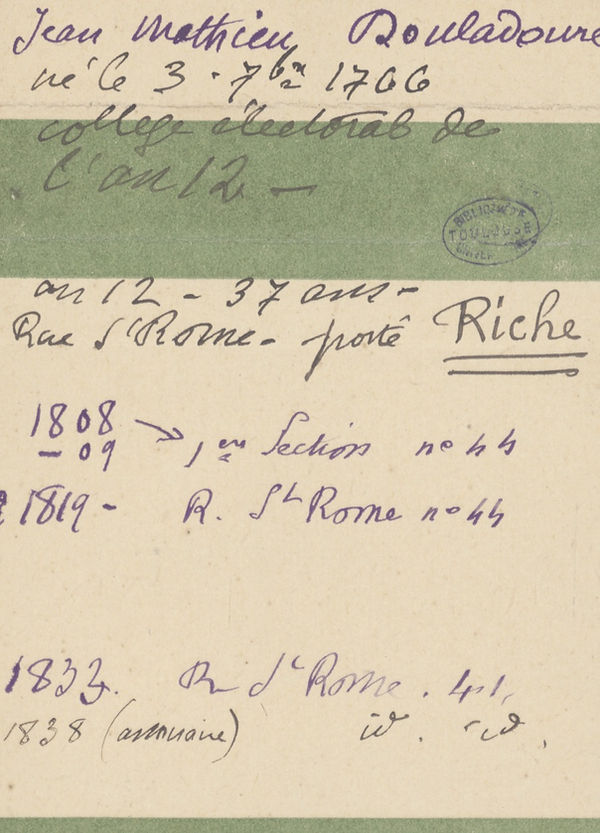 Jean Mathieu Douladoure
né le 3 . 7bre 1766
collège électoral de
l'an 12 —
BIBLIOTHÈQUE
TOULOUSE
an 12 - 37 ans -
Rue St Rome - porté Riche
1808
- 09 → 1ere Section no 44
1819 - R. St Rome no 44
1833. R St Rome . 41.
1838 (annuaire) id . id .